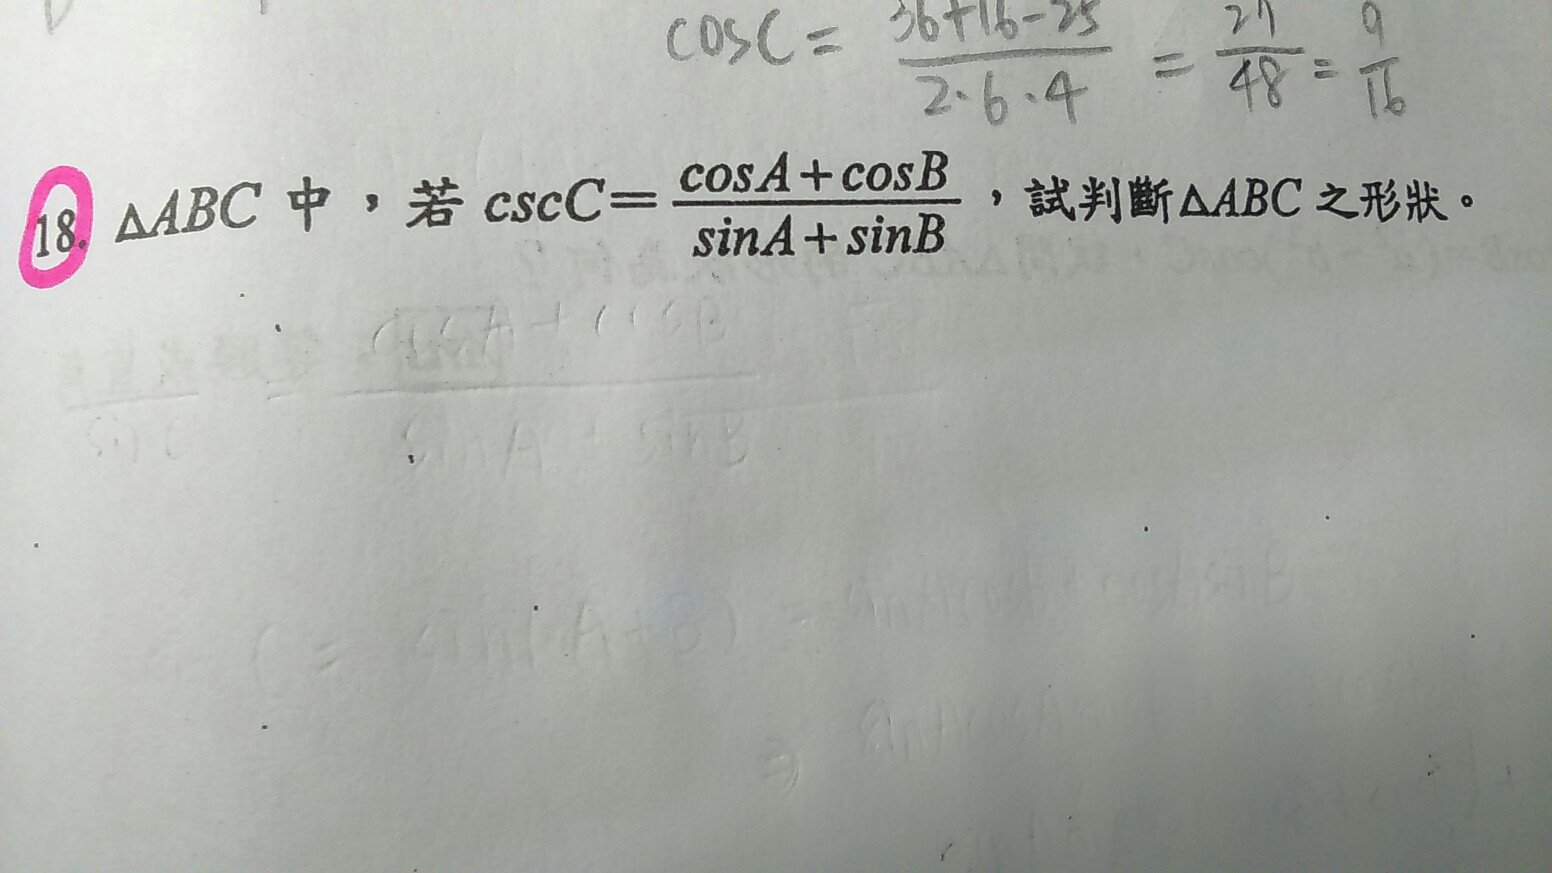 cosC = \frac{36+16-25}{2·6·4} = \frac{27}{48} = \frac{9}{16}
18. △ABC 中，若 cscC=\frac{cosA+cosB}{sinA+sinB}，試判斷△ABC 之形狀。